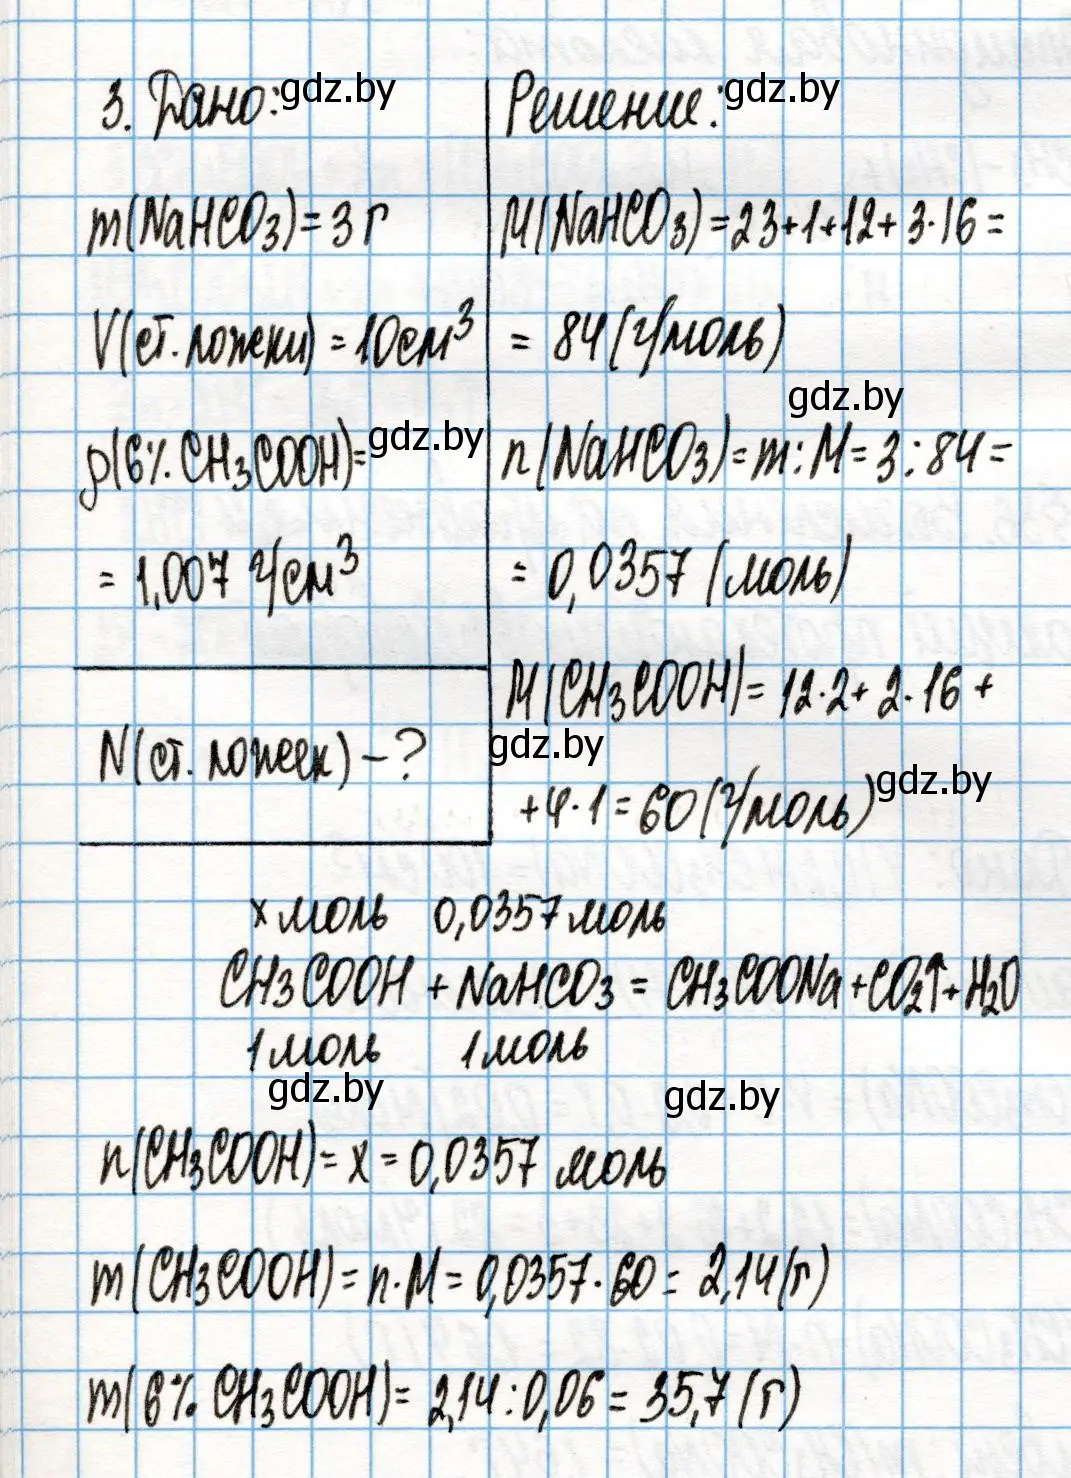 3. Дано: gdz.by
m(NaHCO3) = 3 г
V(ст. ложки) = 10 см³
ρ(6% CH3COOH) = gdz.by
= 1,007 г/см³
N(ст. ложек) – ?
Решение: gdz.by
M(NaHCO3) = 23+1+12+3·16 =
= 84 (г/моль)
gdz.by
n(NaHCO3) = m:M = 3:84 =
= 0,0357 (моль)
M(CH3COOH) = 12·2+2·16+
gdz.by
+4·1 = 60 (г/моль) gdz.by
x моль 0,0357 моль
CH3COOH + NaHCO3 = CH3COONa + CO2↑ + H2O
1 моль 1 моль
gdz.by gdz.by
n(CH3COOH) = x = 0,0357 моль
m(CH3COOH) = n·M = 0,0357·60 = 2,14 (г)
m(6% CH3COOH) = 2,14:0,06 = 35,7 (г)